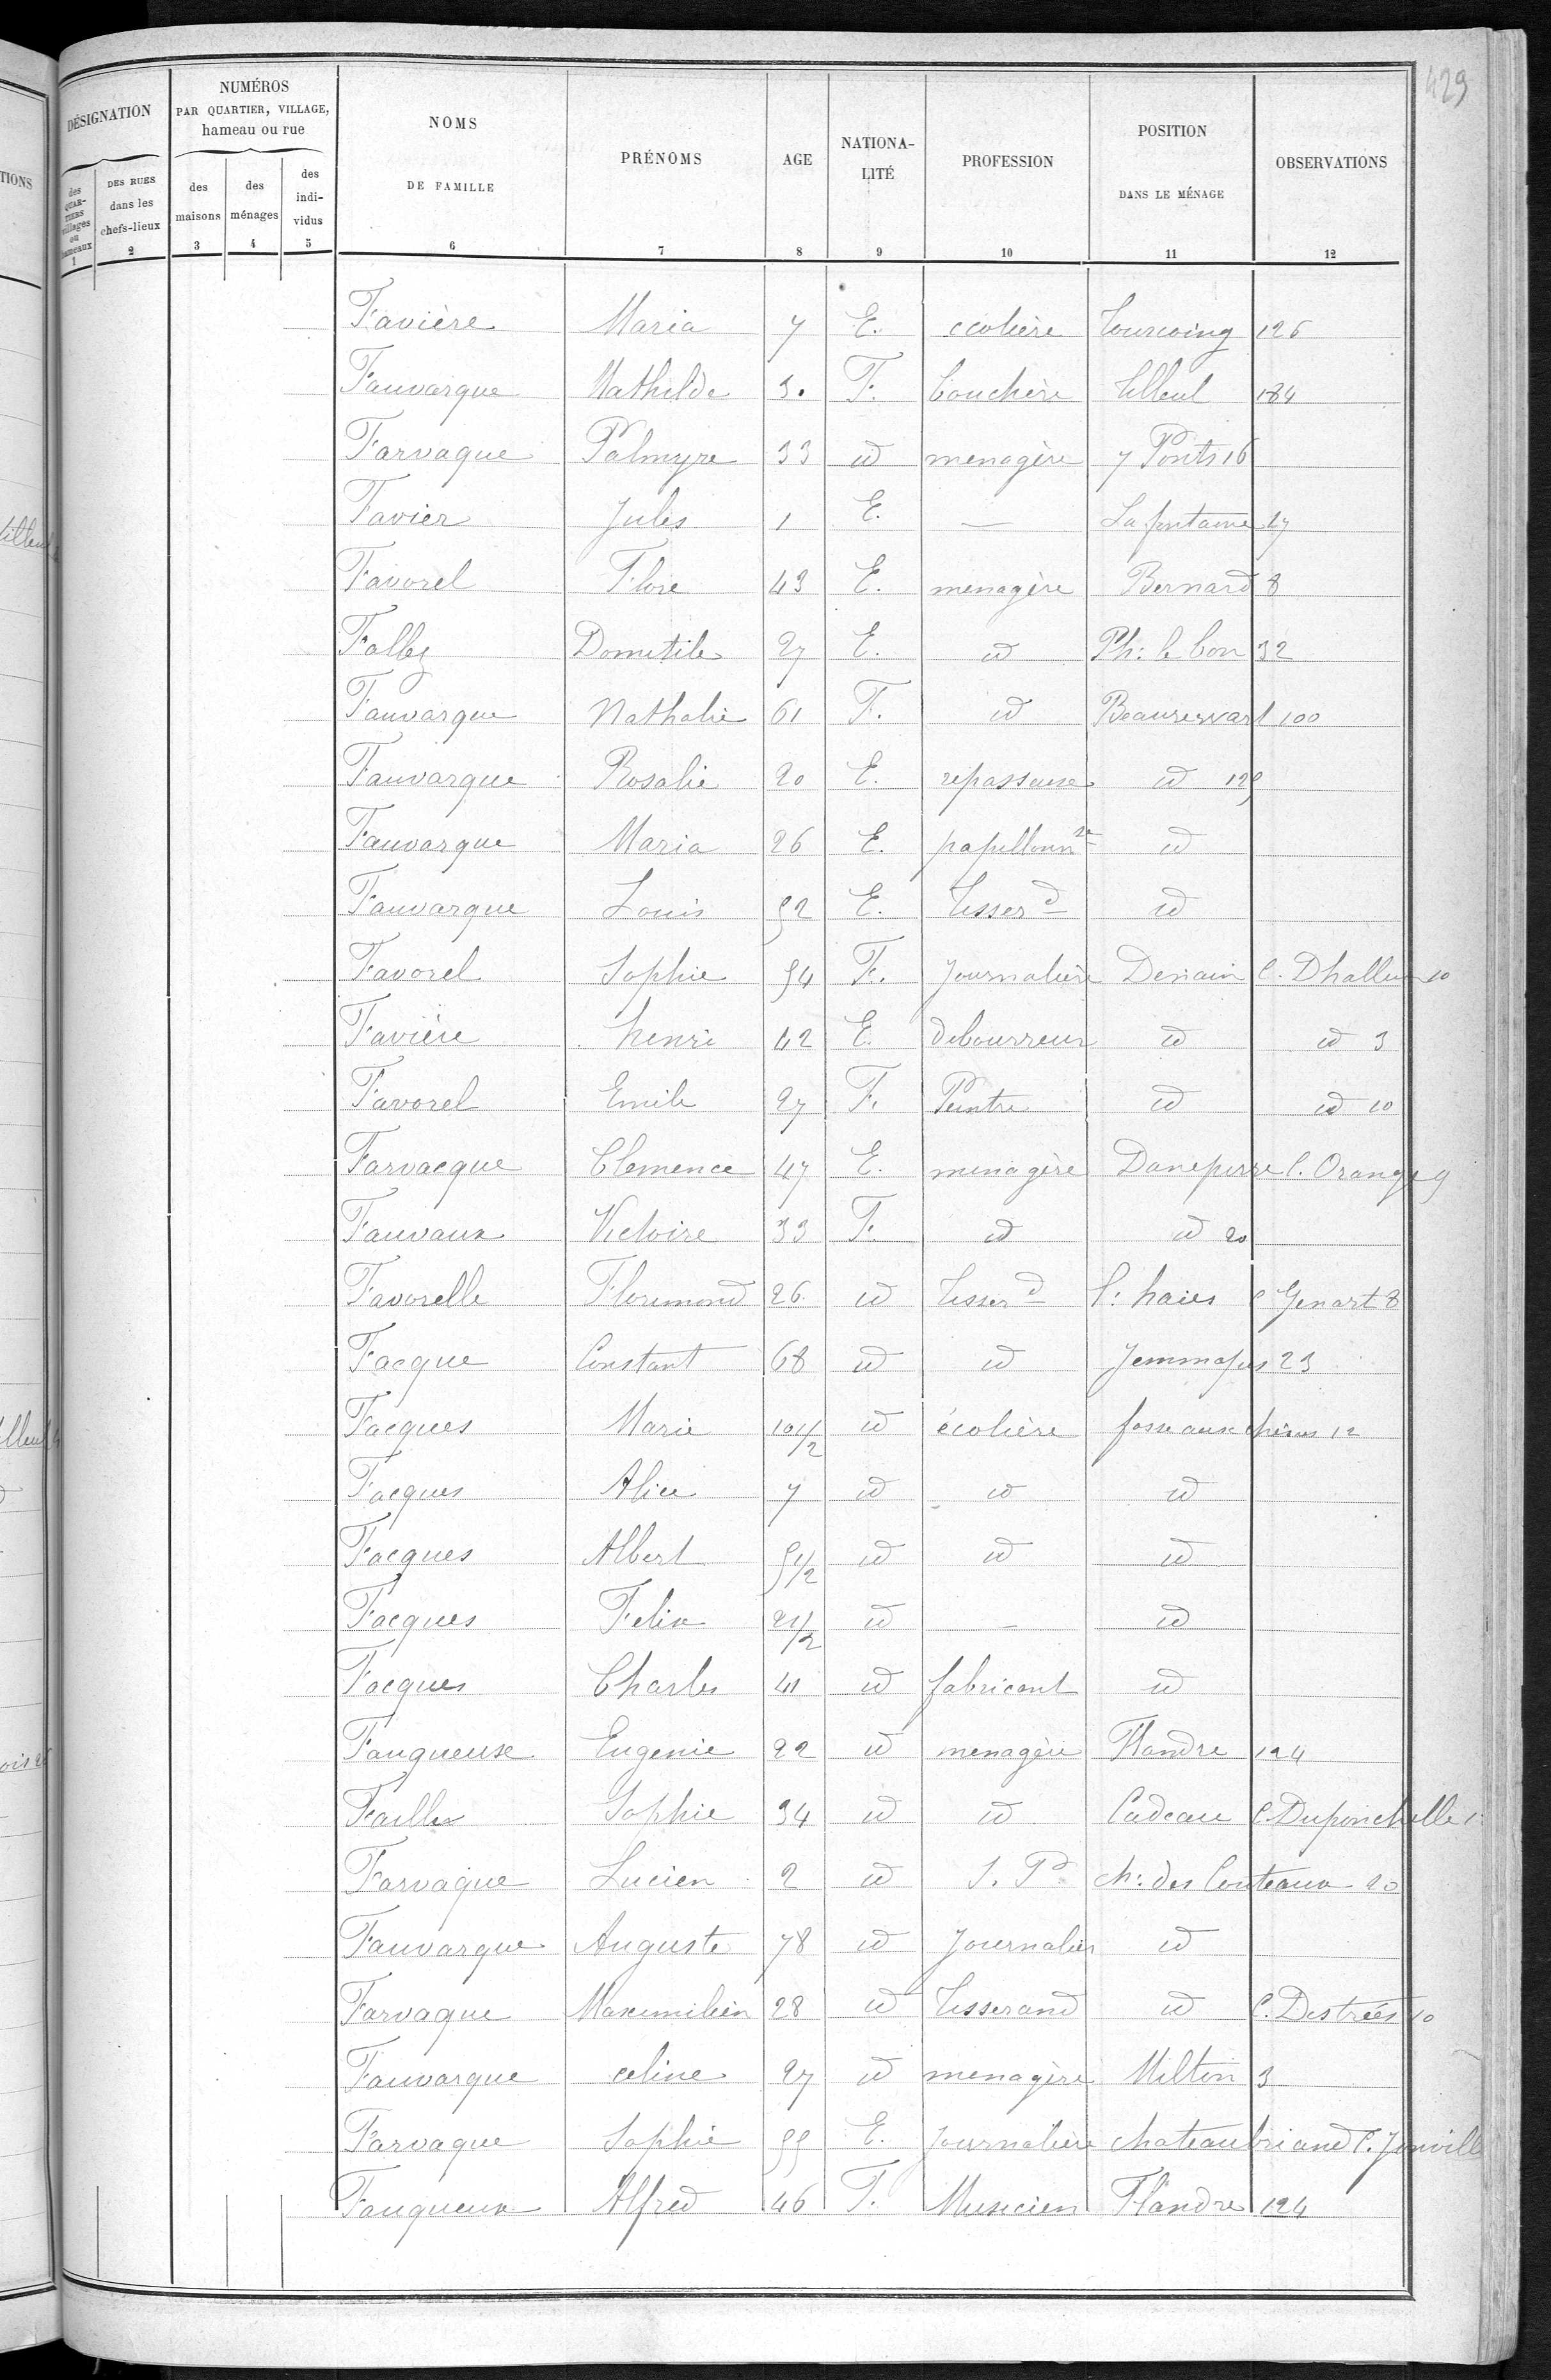 429
DÉSIGNATION
NUMÉROS
PAR QUARTIER, VILLAGE,
hameau ou rue
des QUARTIERS villages ou hameaux
DES RUES dans les chefs-lieux
des maisons
des ménages
des indi-vidus
NOMS DE FAMILLE
PRÉNOMS
AGE
NATIONA-LITÉ
PROFESSION
POSITION DANS LE MÉNAGE
OBSERVATIONS
1 2 3 4 5 6 7 8 9 10 11 12
Favière Maria 7 E. ecolière Tourcoing 126
Fauvarque Mathilde 30 F. bouchère Tilleul 184
Farvaque Palmyre 33 id menagère 7 Ponts 16
Favier Jules 1 E. — Lafontaine 27
Favorel Flore 43 E. menagère Bernard 8
Fallez Dometile 27 E. id Ph: le bon 32
Fauvarque Nathalie 61 F. id Beaurewart 100
Fauvarque Rosalie 20 E. repasseuse id 129
Fauvarque Maria 26 E. papillonnre id
Fauvarque Louis 52 E. Tisserd id
Favorel Sophie 54 F. Journalière Denain C. Dhalluin 10
Favière henri 42 E. debourreur id id 3
Favorel Emile 27 F. Peintre id id 10
Farvacque Clemence 47 E. menagère Danepierre C. Orange 9
Fauvaux Victoire 33 F. id id 20
Favorelle Florimond 26 id Tisserd l: haies C Genart 8
Facque Constant 68 id id Jemmapes 23
Facques Marie 10 1/2 id écolière fosse aux chênes 12
Facques Alice 7 id id id
Facques Albert 5 1/2 id id id
Facques Felix 2 1/2 id — id
Facques Charles 41 id fabricant id
Fauqueuse Eugenie 22 id menagère Flandre 124
Faillex Sophie 34 id id Cadeau C. Duponchelle
Farvaque Lucien 2 id S. P. ch: des Couteaux 20
Fauvarque Auguste 78 id Journalier id
Farvaque Maximilien 28 id Tisserand id C. Destrées 10
Fauvarque celine 27 id menagère Milton 3
Farvaque Sophie 55 E. Journalière chateaubriand C. Joinville
Fauqueux Alfred 46 F. Musicien Flandre 124